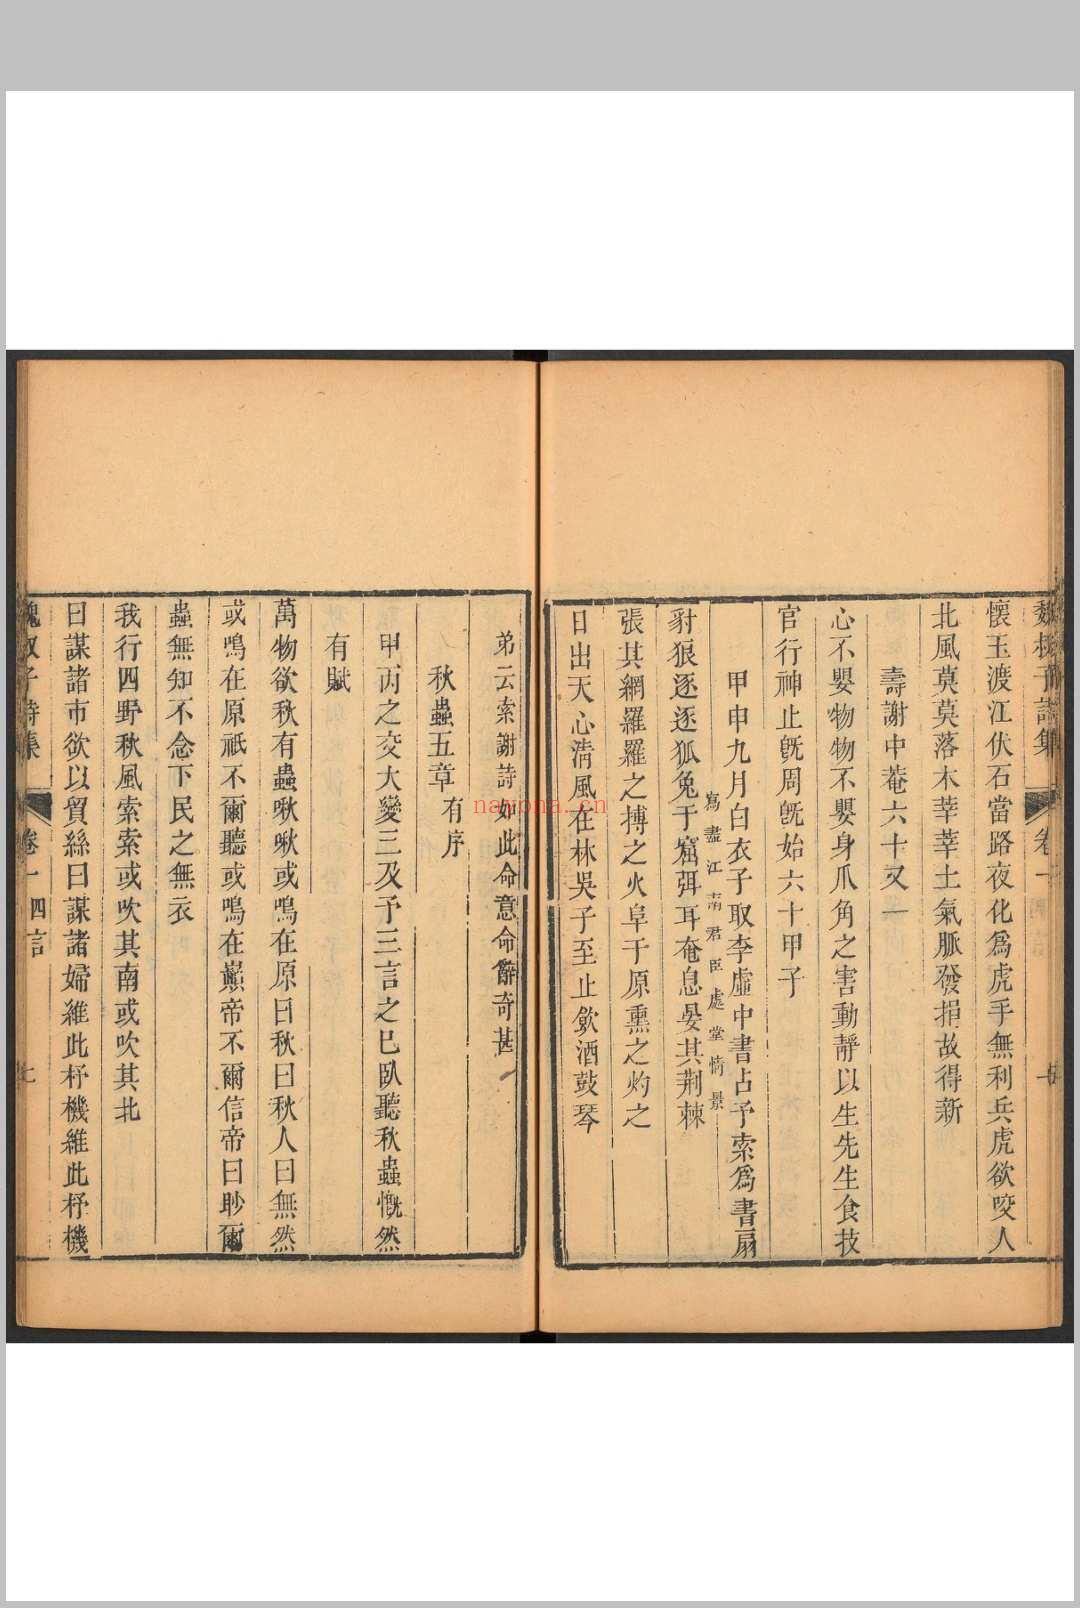 魏叔子詩集 卷一 七
懷玉渡江伏石當路夜化爲虎手無利兵虎欲咬人
北風莫莫落木莘莘土氣脈發捐故得新
壽謝中菴六十又一
心不嬰物物不嬰身爪角之害動靜以生先生食技
官行神止旣周旣始六十甲子
甲申九月白衣子取李虛中書占予索爲書扇
寫盡江南君臣處堂情景
豺狼逐逐狐兔于窟弭耳奄息晏其荆棘
張其網羅羅之搏之火阜于原熏之灼之
日出天心淸風在林吳子至止飮酒鼓琴
弟云索謝詩如此命意命辭奇甚
秋蟲五章有序
甲丙之交大變三及予三言之巳臥聽秋蟲慨然
有賦
萬物欲秋有蟲啾啾或鳴在原曰秋曰秋人曰無然
或鳴在原祇不爾聽或鳴在巓帝不爾信帝曰眇爾
蟲無知不念下民之無衣
我行四野秋風索索或吹其南或吹其北
曰謀諸市欲以貿絲曰謀諸婦維此杼機維此杼機
魏叔子詩集 卷一 四言 七
naypna.cn